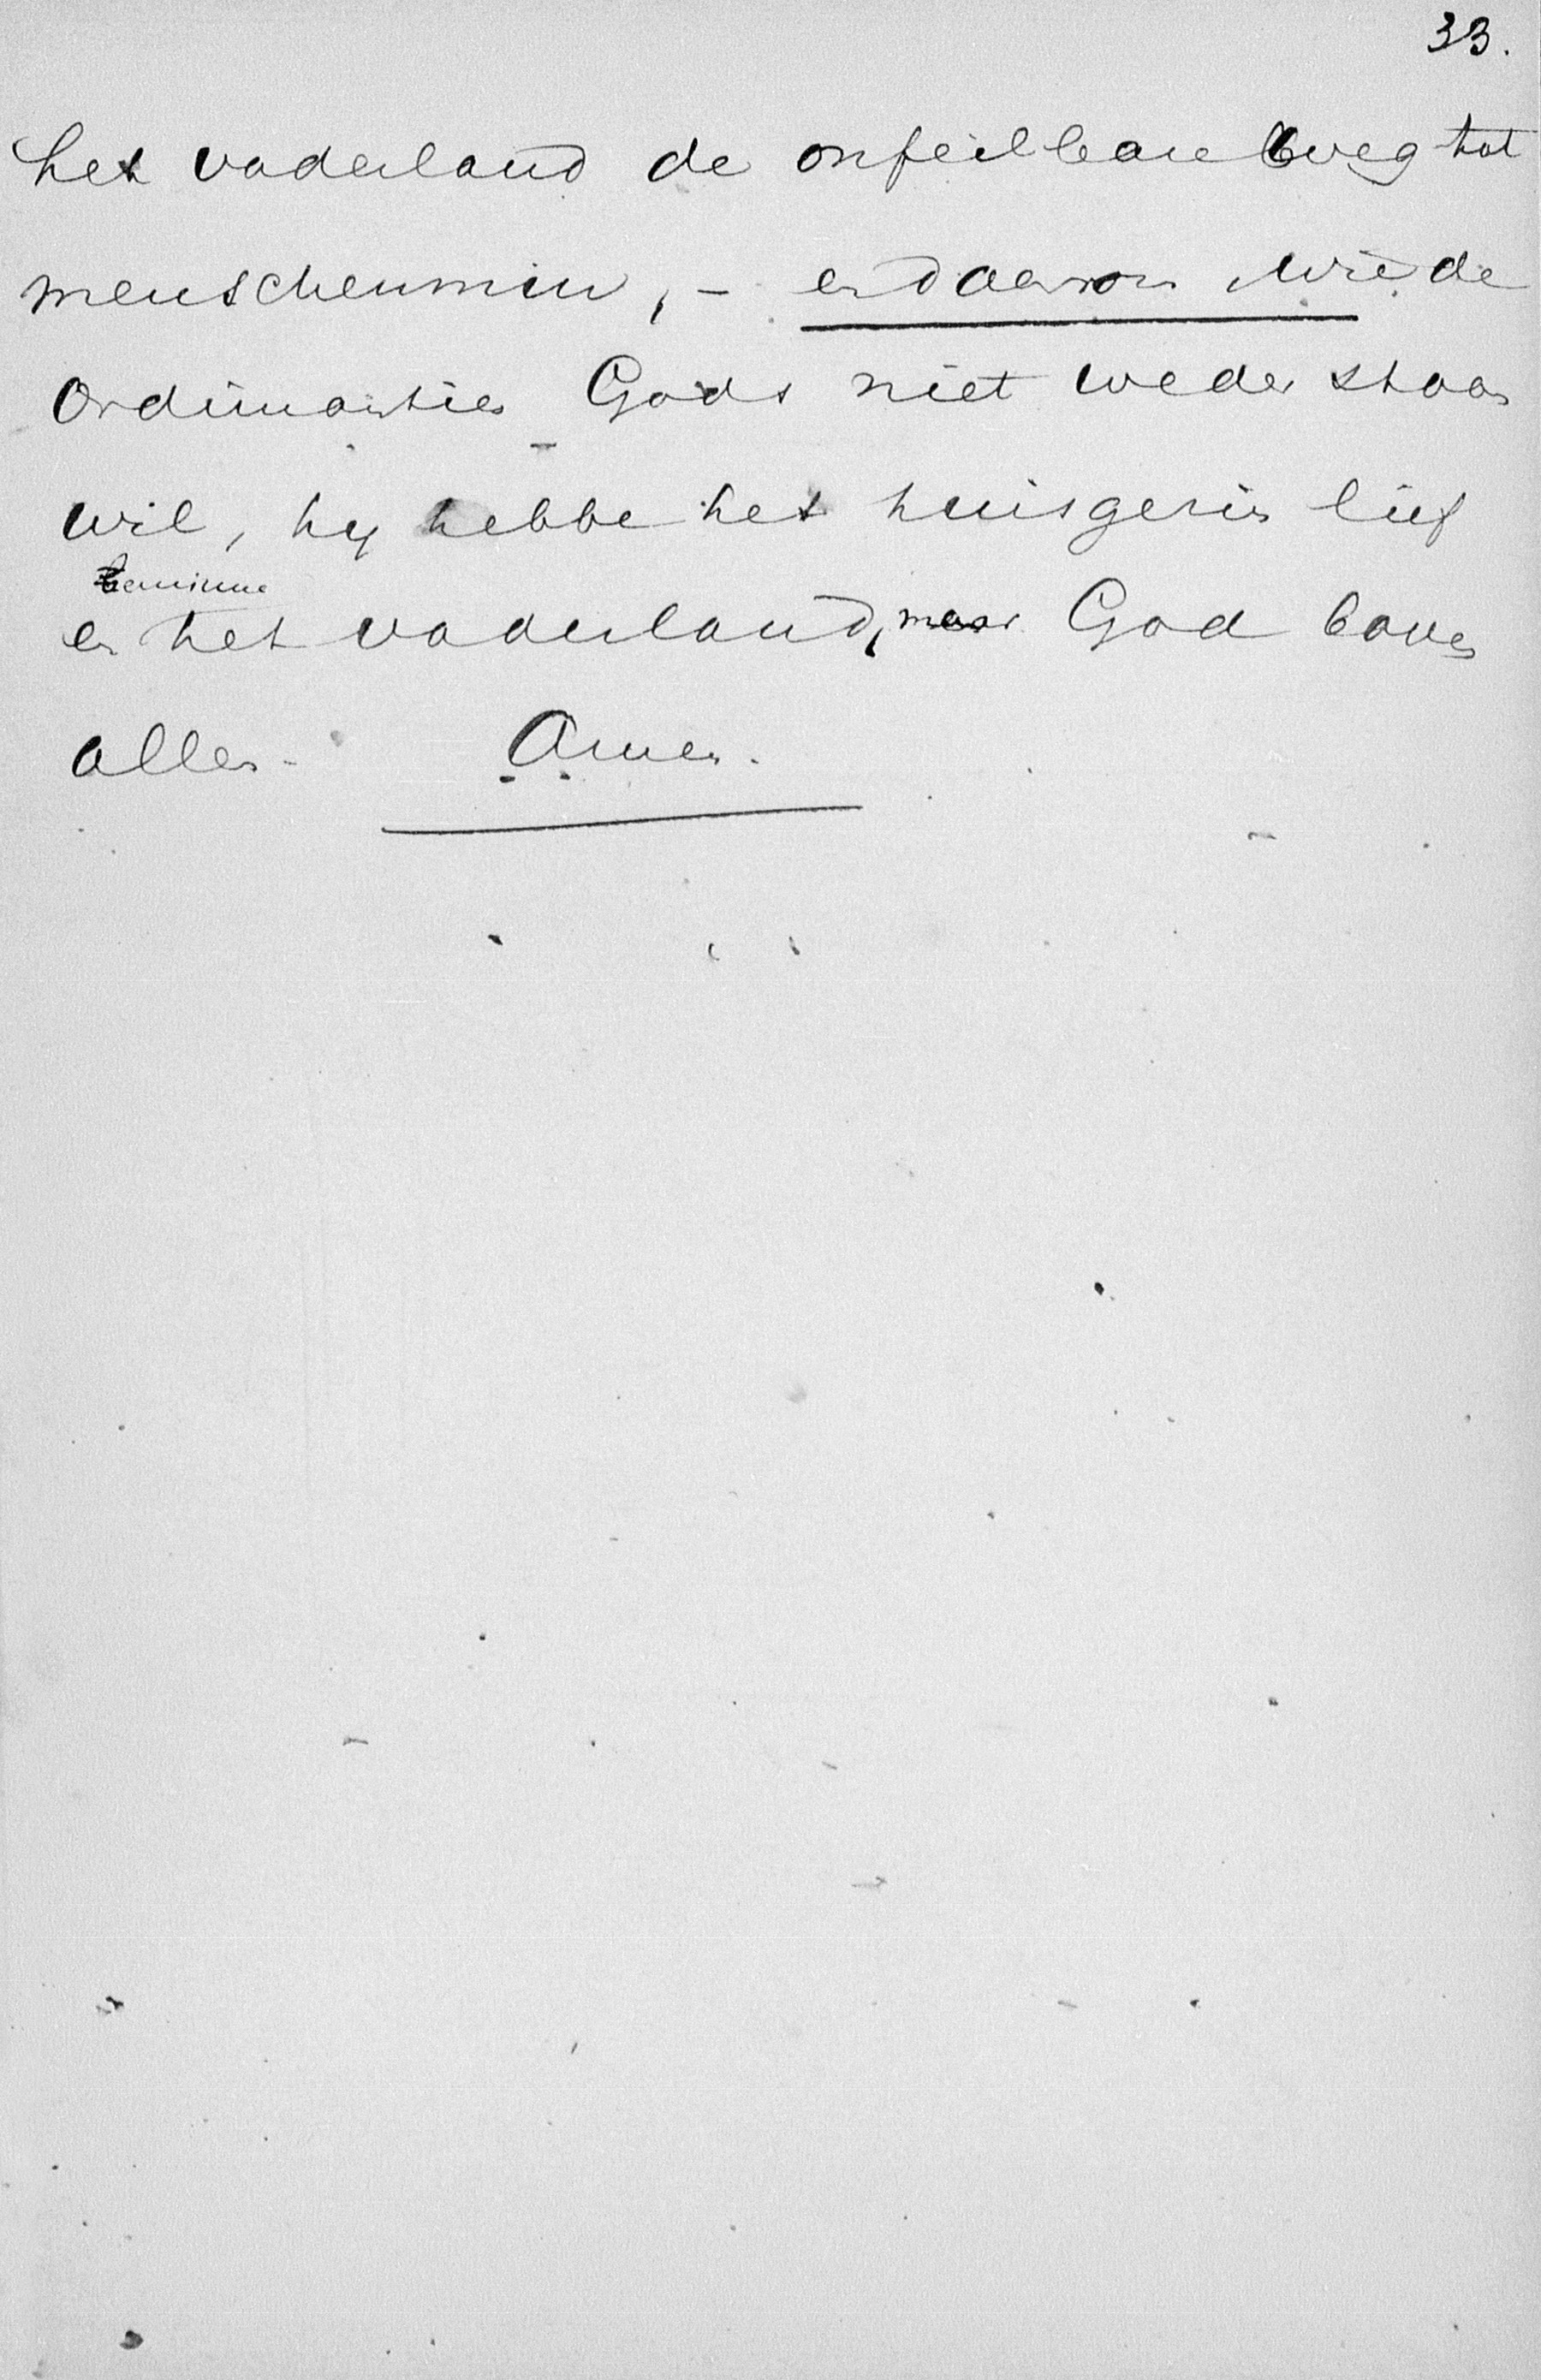 33.
het vaderland de onfeilbare weg tot
menschenmin, – en daarom wie de
Ordinantiën Gods niet wederstaan
wil, hij hebbe het huisgezin lief
beminne
en het vaderland, maar God boven
alles. Amen.